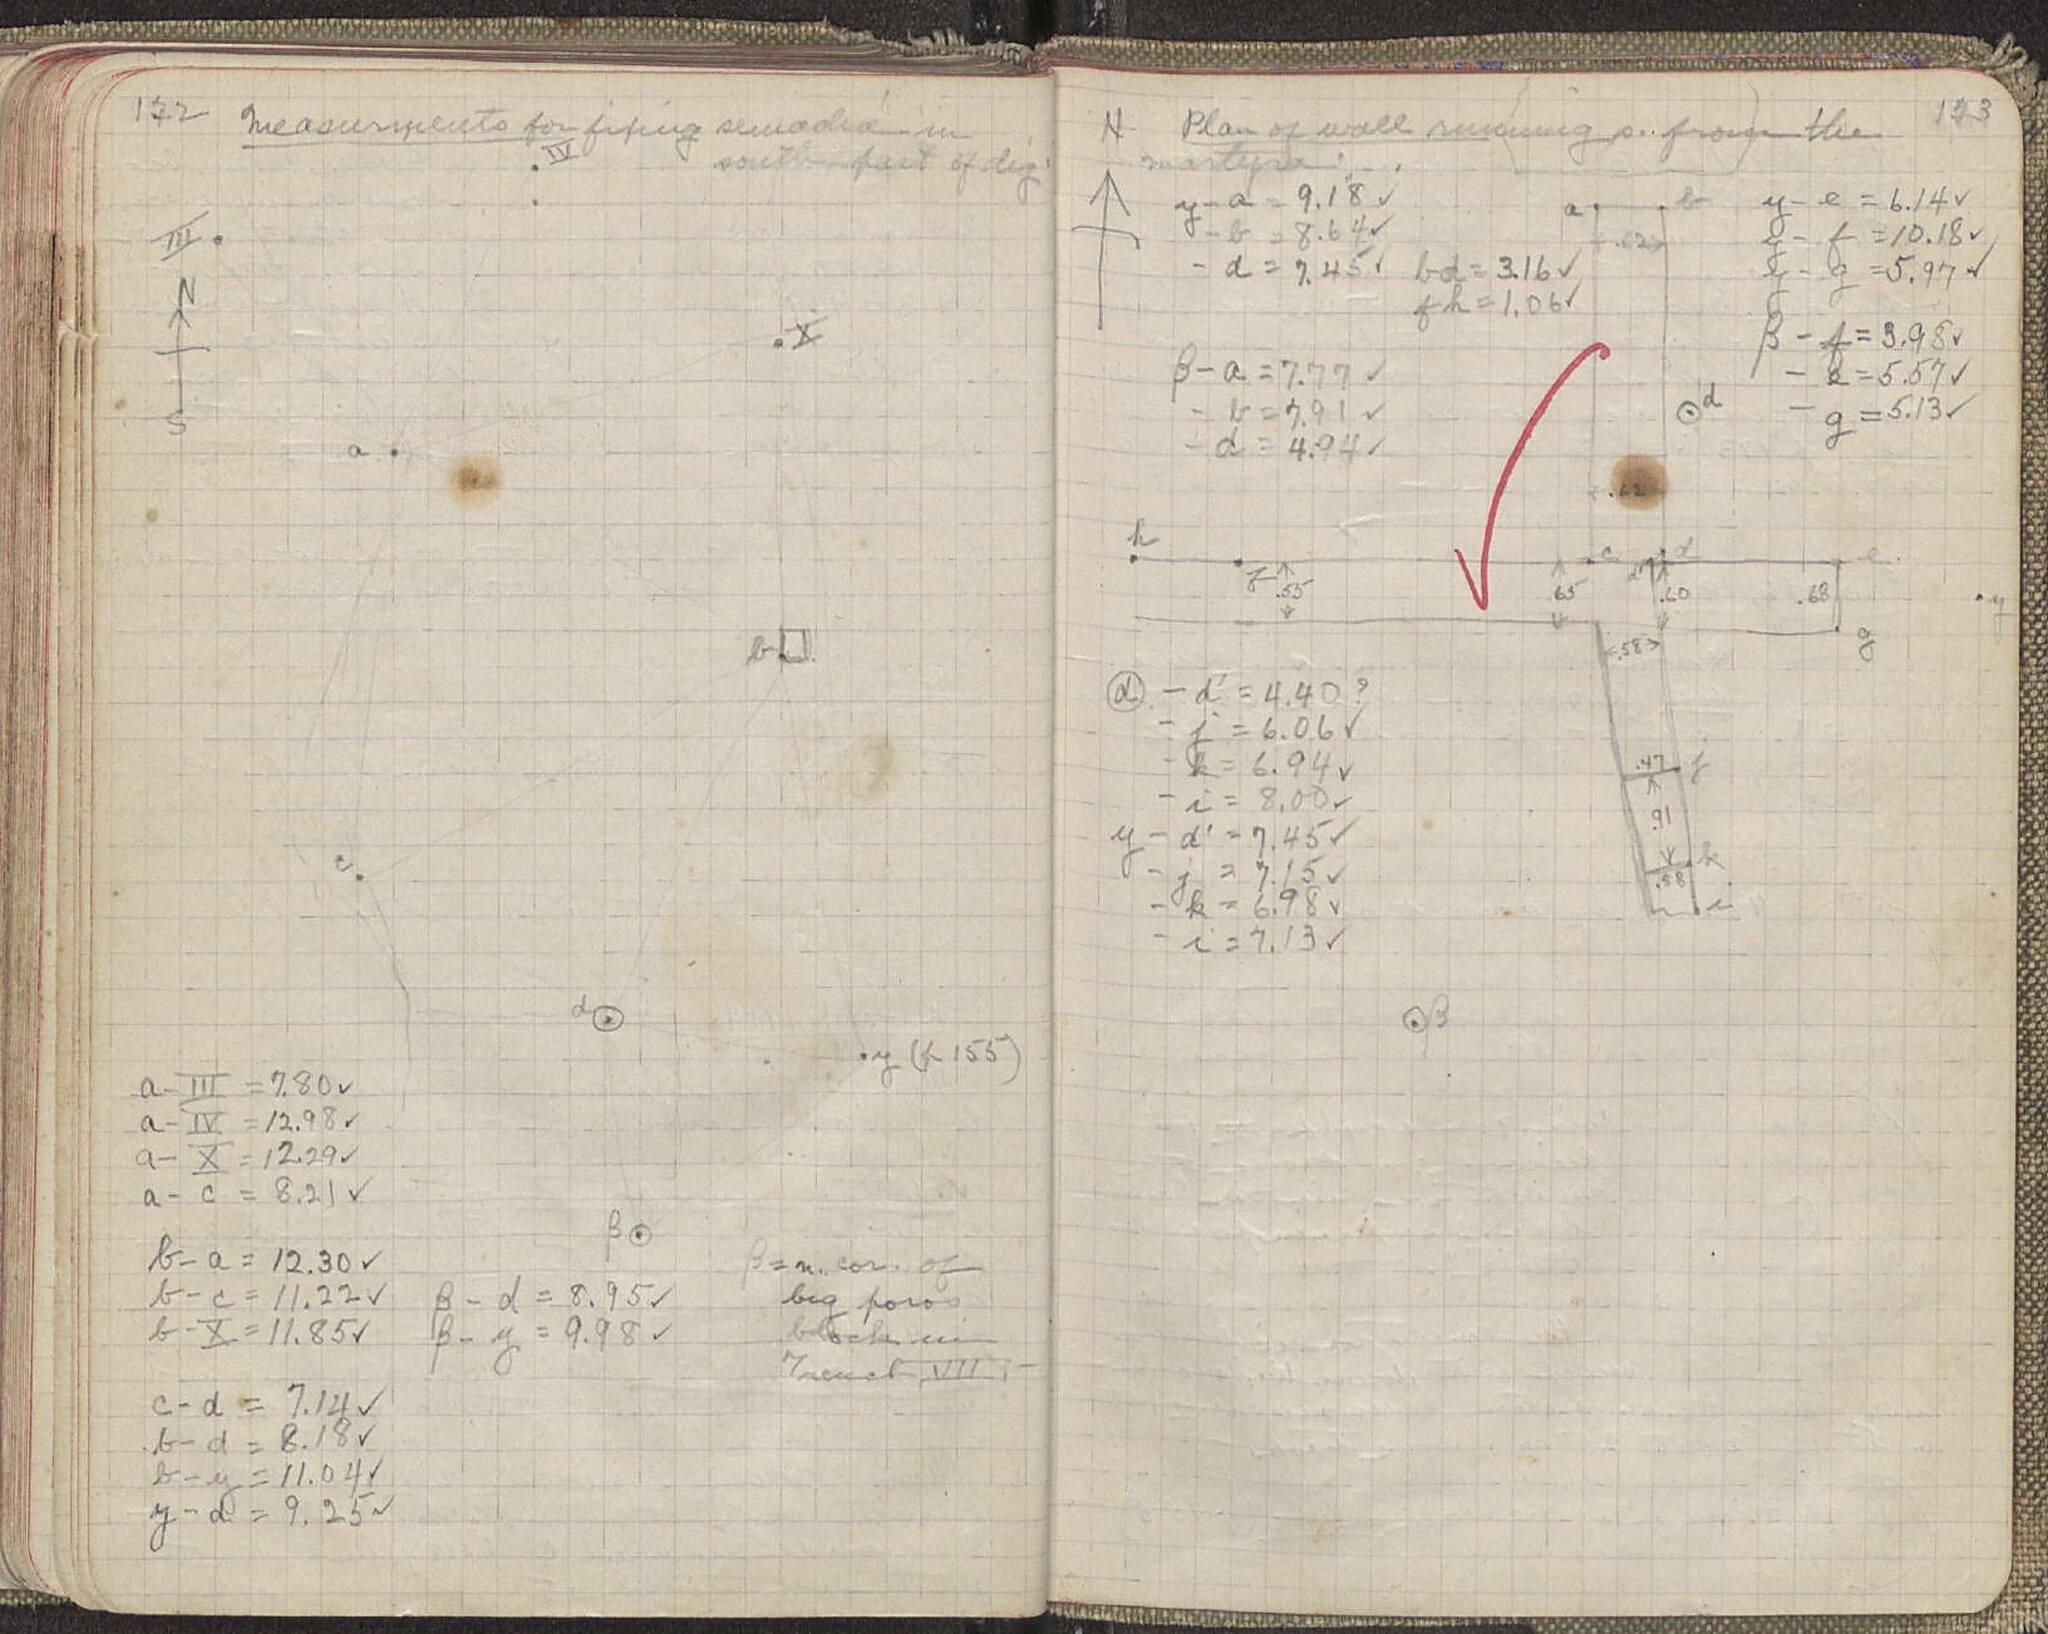 172
Measurements for fixing semadia in
south part of dig.
IV
III
N
X
S
a
b
c
d
y (p 155)
a - III = 7.80 ✓
a - IV = 12.98 ✓
a - X = 12.29 ✓
a - c = 8.21 ✓
β
b - a = 12.30 ✓
b - c = 11.22 ✓
b - X = 11.85 ✓
β - d = 8.95 ✓
β - y = 9.98 ✓
β = n. cor. of
big poros
block in
Trench VII
c - d = 7.14 ✓
b - d = 8.18 ✓
b - y = 11.04 ✓
y - d = 9.25 ✓
173
N
Plan of wall running s. from the
y - a = 9.18 ✓
- b = 8.64 ✓
- d = 7.45 ✓
bd = 3.16 ✓
fh = 1.06 ✓
a
b
.62
y - e = 6.14 ✓
y - f = 10.18 ✓
y - g = 5.97 ✓
β - f = 3.98 ✓
- e = 5.57 ✓
- g = 5.13 ✓
β - a = 7.77 ✓
- b = 7.91 ✓
- d = 4.94 ✓
d
.62
h
f
.55
c
.65
d'
d
.60
e
.68
y
g
.58
d - d' = 4.40 ?
- j = 6.06 ✓
- k = 6.94 ✓
- i = 8.00 ✓
y - d' = 7.45 ✓
- j = 7.15 ✓
- k = 6.98 ✓
- i = 7.13 ✓
.47
j
.91
k
.58
i
β